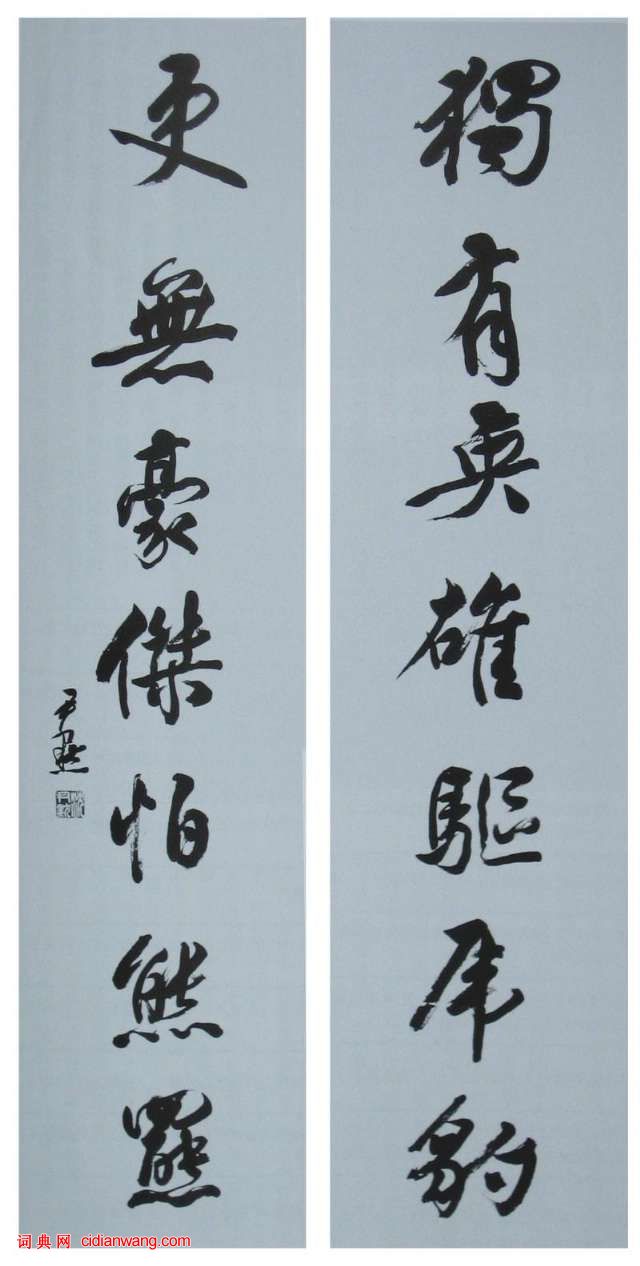 獨有英雄驅虎豹
更無豪傑怕熊羆
尹默
词典网 cidianwang.com